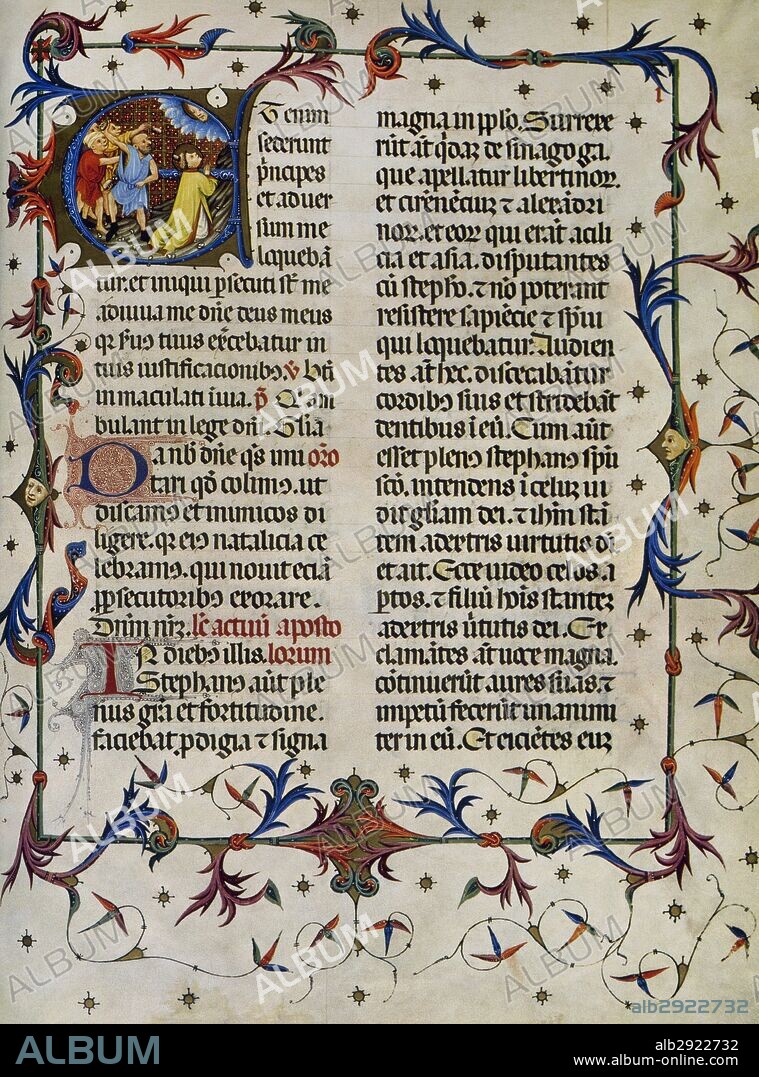 Etenim
sederunt
p̄ncipes
et aduer
sum me
loquebā
tur. et iniqui p̱secuti st̄ me
adiuua me dn̄e deus meus
qꝛ seruꝰ tuus ex̄cebatur in
tuis iustificationibꝰ. v̄ Bt̄i
inmaculati in uia. p̄ Qi am
bulant in lege dn̄i. Gl̄ia
Da nb̄ dn̄e qs̄ imi oro
tari qd̄ colimꝰ. ut
discamꝰ et inimicos di
ligere. qꝛ eiꝰ natalicia ce
lebramꝰ. qui nouit eciā
p̱secutoribꝰ exorare.
Dnm̄ nr̄z. lc̄ actuū aposto
In diebꝰ illis. lorum
Stephanꝰ aūt ple
nus grā et fortitudine.
faciebat p̱digia ⁊ signa
magna in pp̄lo. Surrexe
rūt aūt qd̄az de sinagoga.
que apellatur libertinoꝝ.
et cirenēciuz ⁊ alexādri
noꝝ. et eoꝝ qui erāt a cili
cia et asia. disputantes
cū stepħo. ⁊ nō poterant
resistere sapiēcie ⁊ sp̄ui
qui loquebatur. Audien
tes aūt hec. discecabātur
cordibꝰ suis et stridebāt
dentibus i eū. Cum aūt
esset plenꝰ stephanꝰ sp̄u
sc̄o. intendens i celuz ui
dit gl̄iam dei. ⁊ ih̄m stā
tem a dextris uirtutis dī
et ait. Ecce uideo celos a
ptos. ⁊ filiū ho̅is stantez
a dextris ūtutis dei. Ex
clamātes aūt uoce magna.
cōtinuerūt aures suas. ⁊
impetū fecerūt unanimi
ter in eū. Et eiciētes euz
alb2922732
ALBUM
alb2922732
www.album-online.com